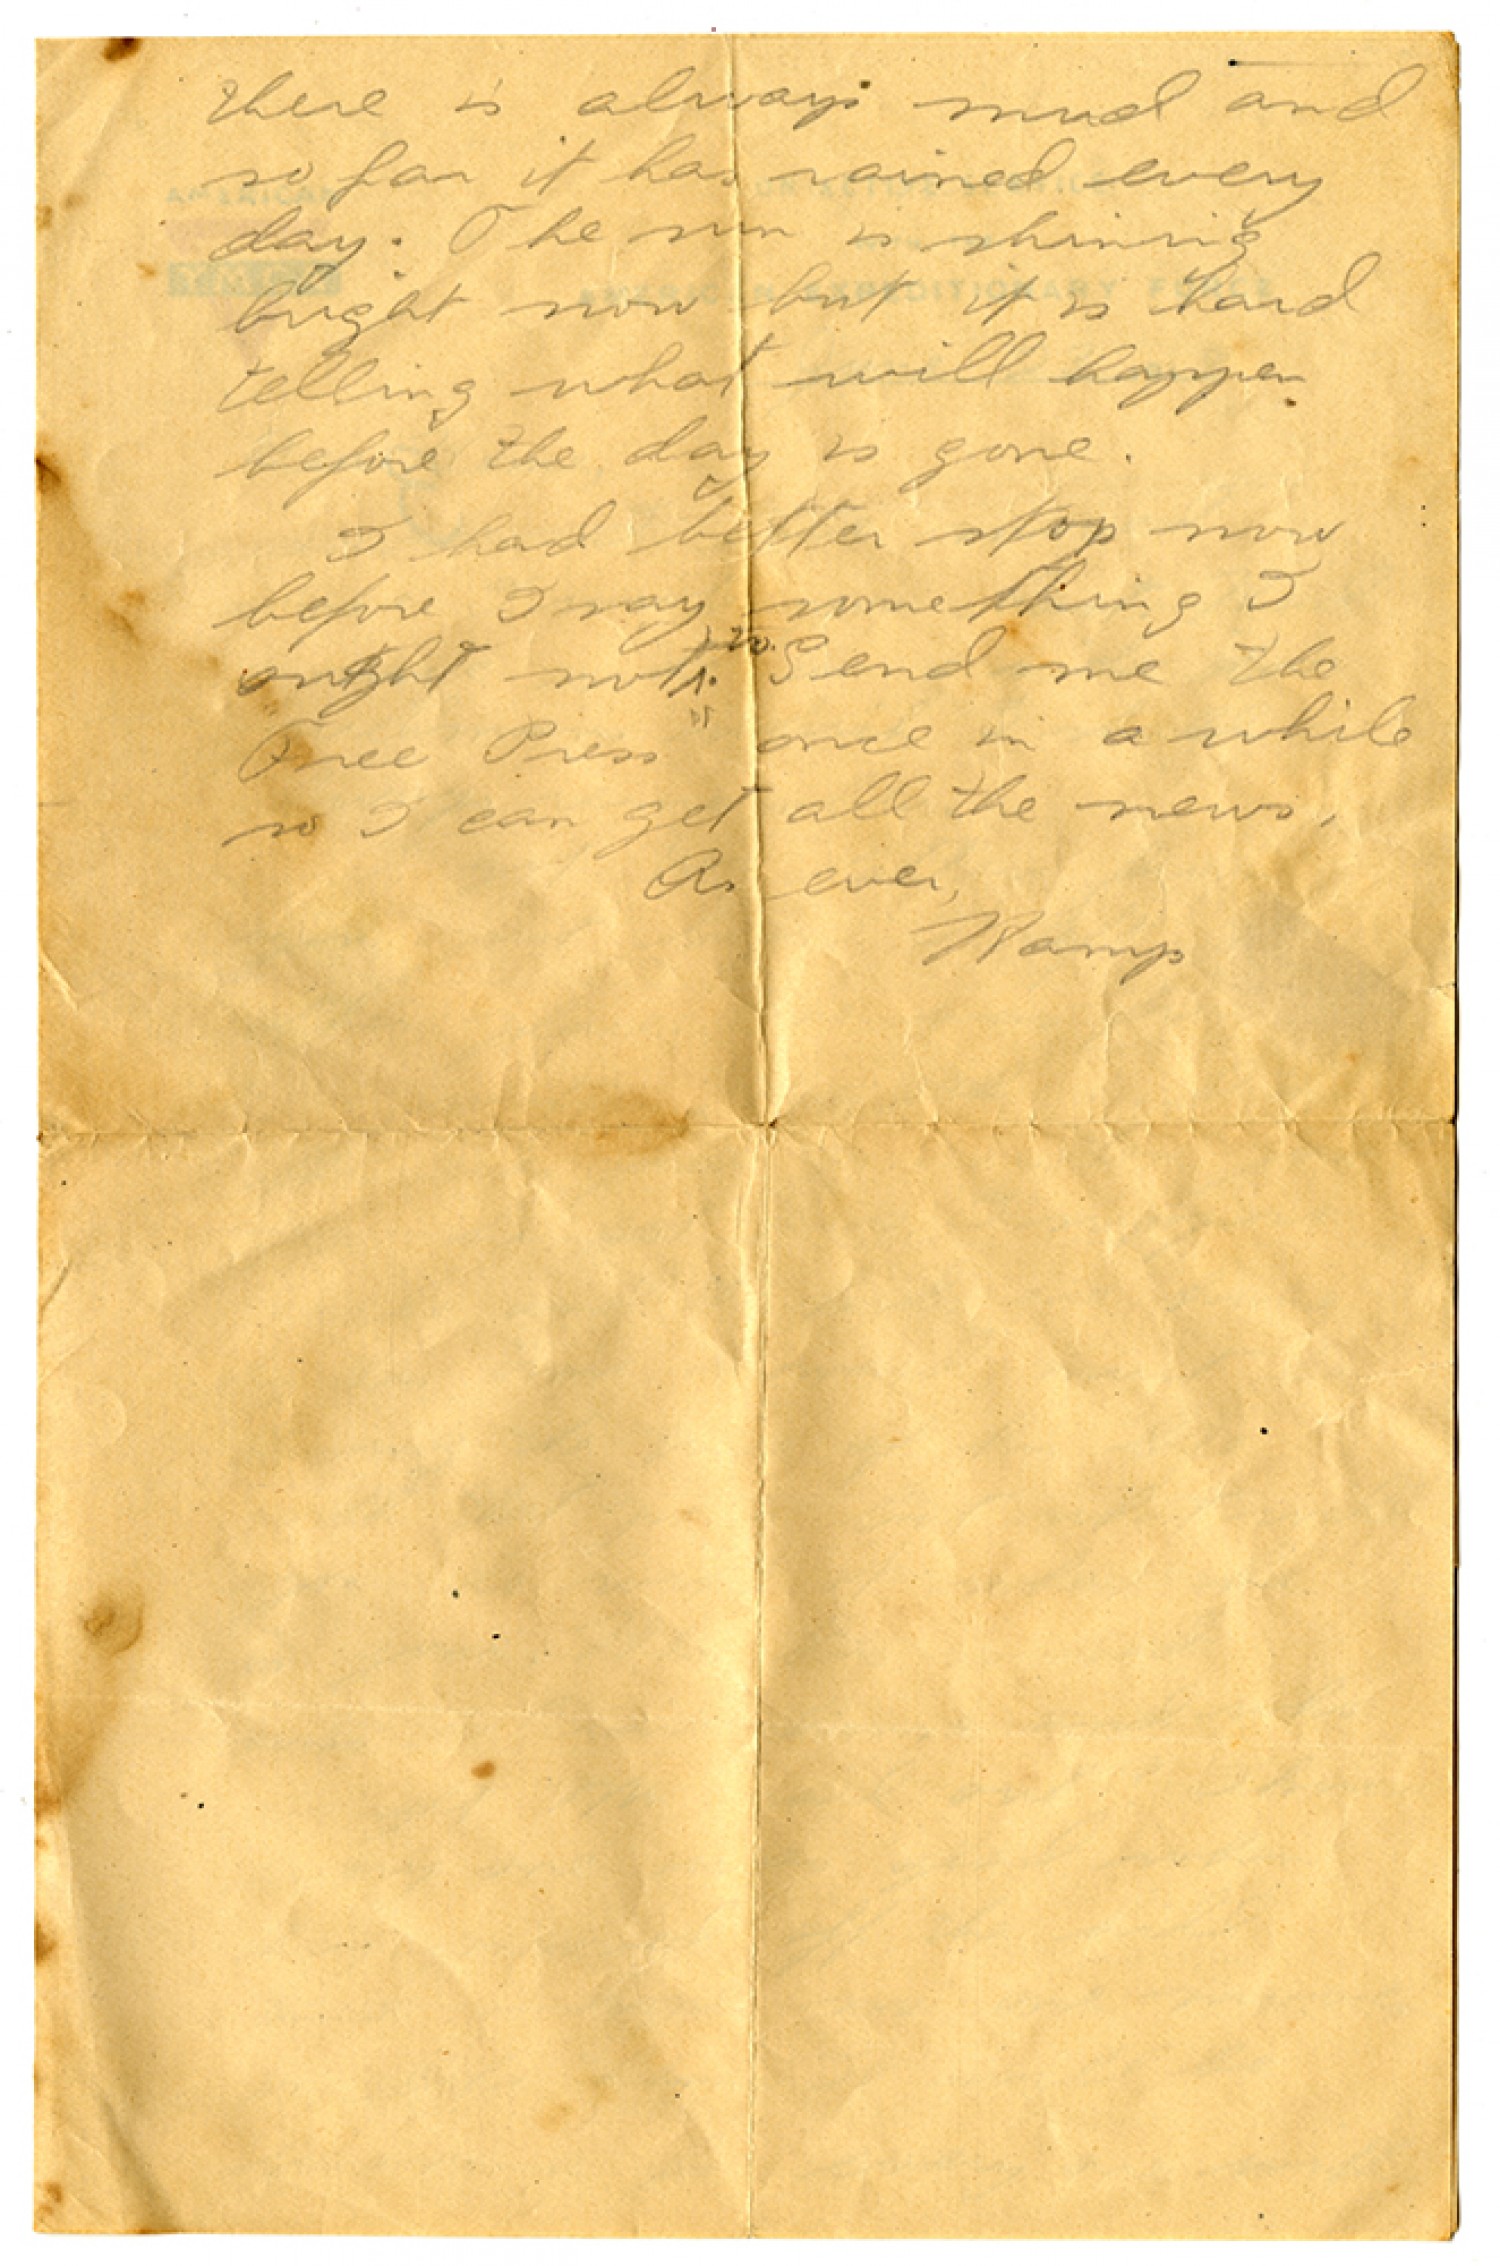 there is always mud and
so far it has rained every
day. The sun is shining
bright now but it is hard
telling what will happen
before the day is gone.
I had better stop now
before I say something I
ought not to. Send me the
"Free Press" once in a while
so I can get all the news.
As ever,